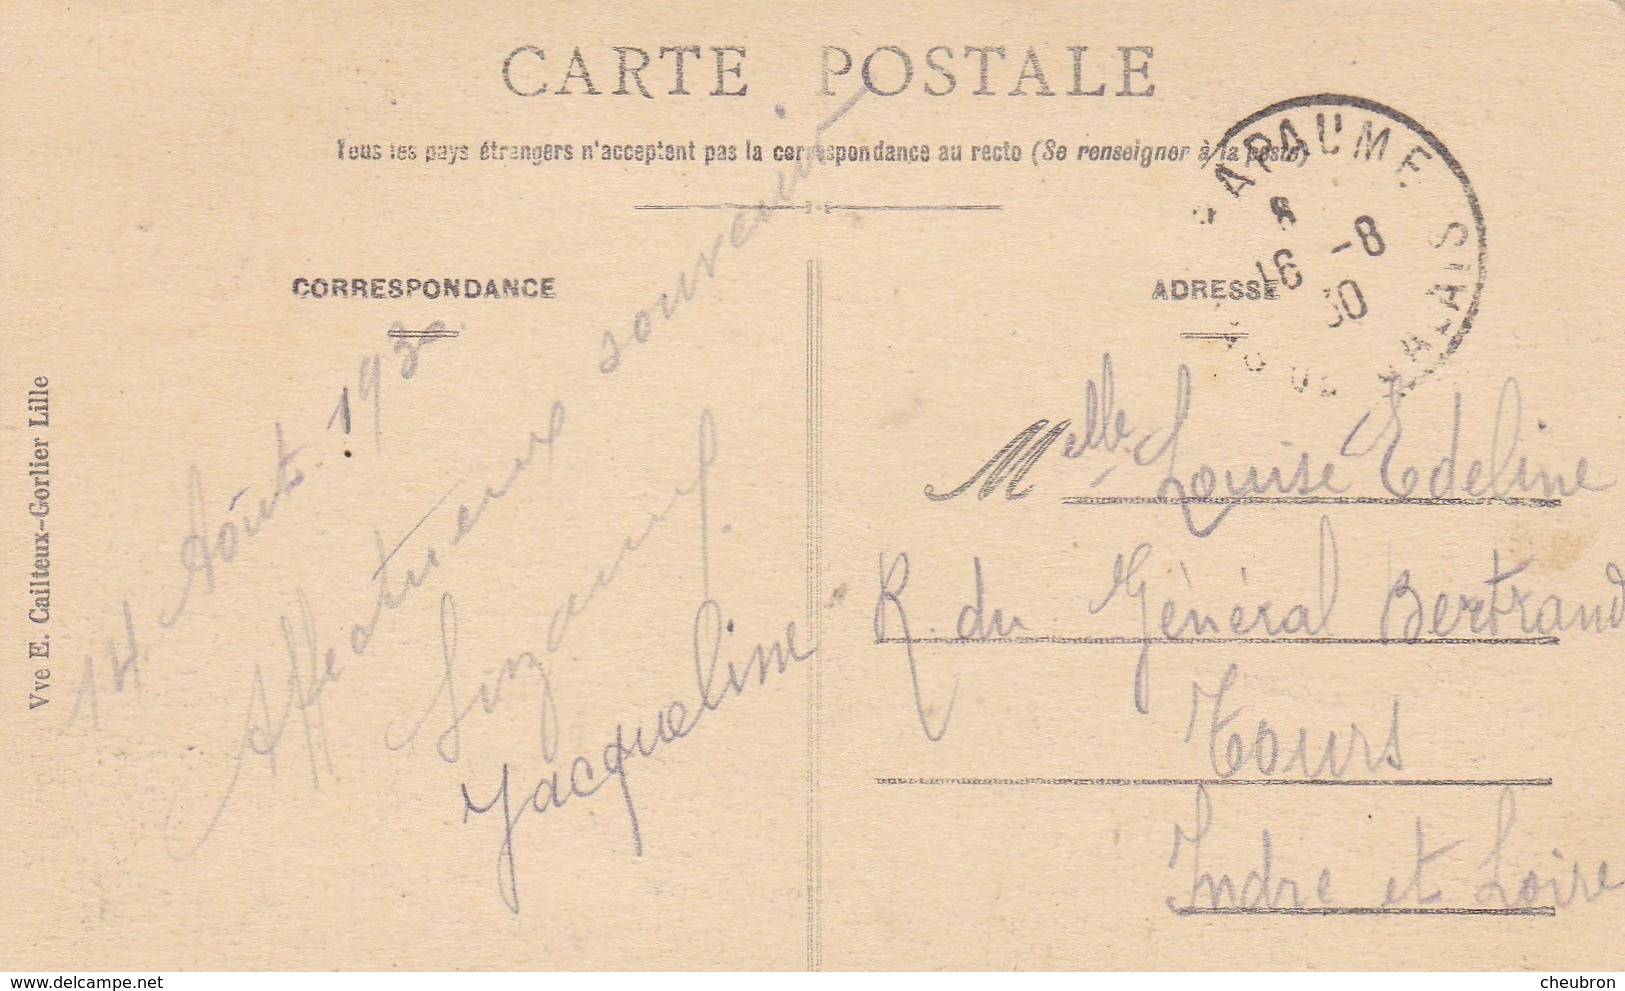 CARTE POSTALE
Tous les pays étrangers n'acceptent pas la correspondance au recto (Se renseigner à la poste)
CORRESPONDANCE
ADRESSE
BAPAUME
8
16 -8
30
PAS DE CALAIS
Vve E. Cailteux-Gorlier Lille
14 Août 1930.
Affectueux souvenir
Suzanne.
Jacqueline
Melle Louise Edeline
R. du Général Bertrand
Tours
Indre et Loire
delcampe.net
cheubron